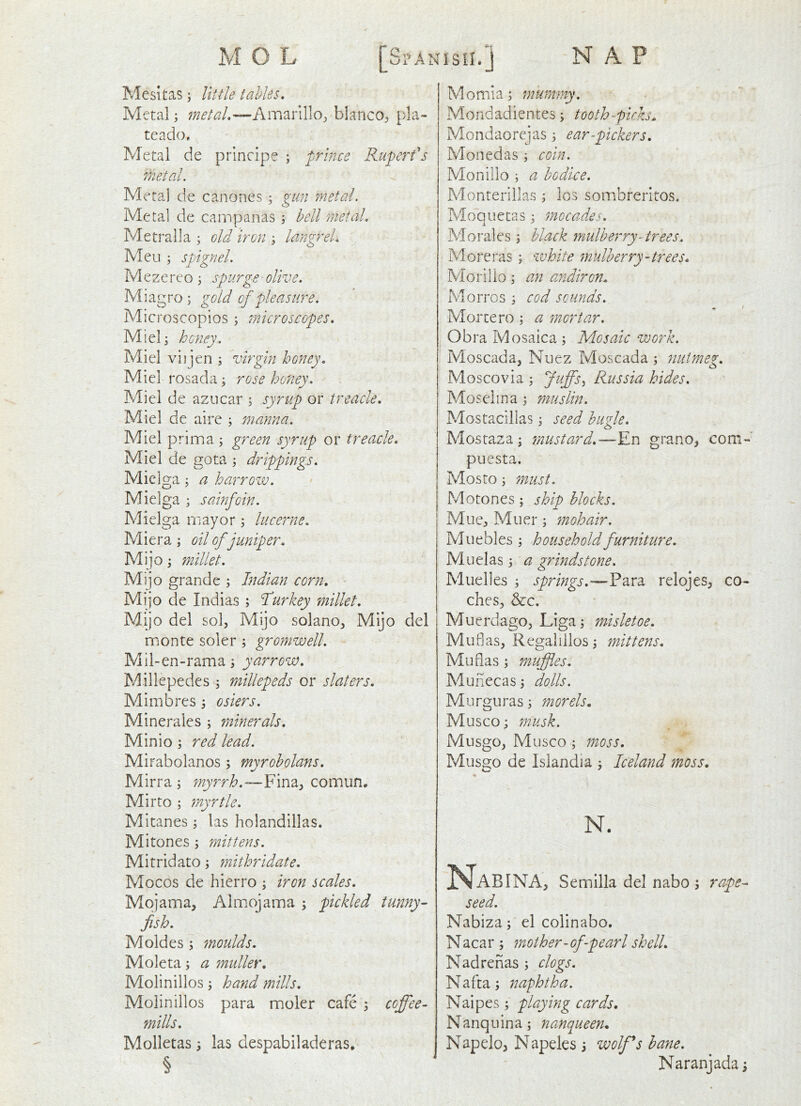 MOL [SPANISH.] NAP
Mesitas; little tables.
Metal; metal.—Amarillo, blanco, pla-
teado.
Metal de principe; prince Rupert's
metal.
Metal de canones; gun metal.
Metal de campanas; bell metal.
Metralla; old iron; langrel.
Meu; spignel.
Mezereo; spurge olive.
Miagro; gold of pleasure.
Microscopios; microscopes.
Miel; honey.
Miel virjen; virgin honey.
Miel rosada; rose honey.
Miel de azucar; syrup or treacle.
Miel de aire; manna.
Miel prima; green syrup or treacle.
Miel de gota; drippings.
Mielga; a harrow.
Mielga; sainfoin.
Mielga mayor; lucerne.
Miera; oil of juniper.
Mijo; millet.
Mijo grande; Indian corn.
Mijo de Indias; Turkey millet.
Mijo del sol, Mijo solano, Mijo del
monte soler; gromwell.
Mil-en-rama; yarrow.
Millepedes; millepeds or slaters.
Mimbres; osiers.
Minerales; minerals.
Minio; red lead.
Mirabolanos; myrobolans.
Mirra; myrrh.—Fina, comun.
Mirto; myrtle.
Mitanes; las holandillas.
Mitones; mittens.
Mitridato; mithridate.
Mocos de hierro; iron scales.
Mojama, Almojama; pickled tunny-
fish.
Moldes; moulds.
Moleta; a muller.
Molinillos; hand mills.
Molinillos para moler café; coffee-
mills.
Molletas; las despabiladeras.
§
Momia; mummy.
Mondadientes; tooth-picks.
Mondaorejas; ear-pickers.
Monedas; coin.
Monillo; a bodice.
Monterillas; los sombreritos.
Moquetas; mocades.
Morales; black mulberry-trees.
Moreras; white mulberry-trees.
Morillo; an andiron.
Morros; cod sounds.
Mortero; a mortar.
Obra Mosaica; Mosaic work.
Moscada, Nuez Moscada; nutmeg.
Moscovia; Juffs, Russia hides.
Moselina; muslin.
Mostacillas; seed bugle.
Mostaza; mustard.—En grano, com-
puesta.
Mosto; must.
Motones; ship blocks.
Mue, Muer; mohair.
Muebles; household furniture.
Muelas; a grindstone.
Muelles; springs.—Para relojes, co-
ches, &c.
Muerdago, Liga; misletoe.
Muflas, Regalillos; mittens.
Muflas; muffles.
Muñecas; dolls.
Murguras; morels.
Musco; musk.
Musgo, Musco; moss.
Musgo de Islandia; Iceland moss.
N.
NABINA, Semilla del nabo; rape-
seed.
Nabiza; el colinabo.
Nacar; mother-of-pearl shell.
Nadreñas; clogs.
Nafta; naphtha.
Naipes; playing cards.
Nanquina; nanqueen.
Napelo, Napeles; wolf's bane.
Naranjada;